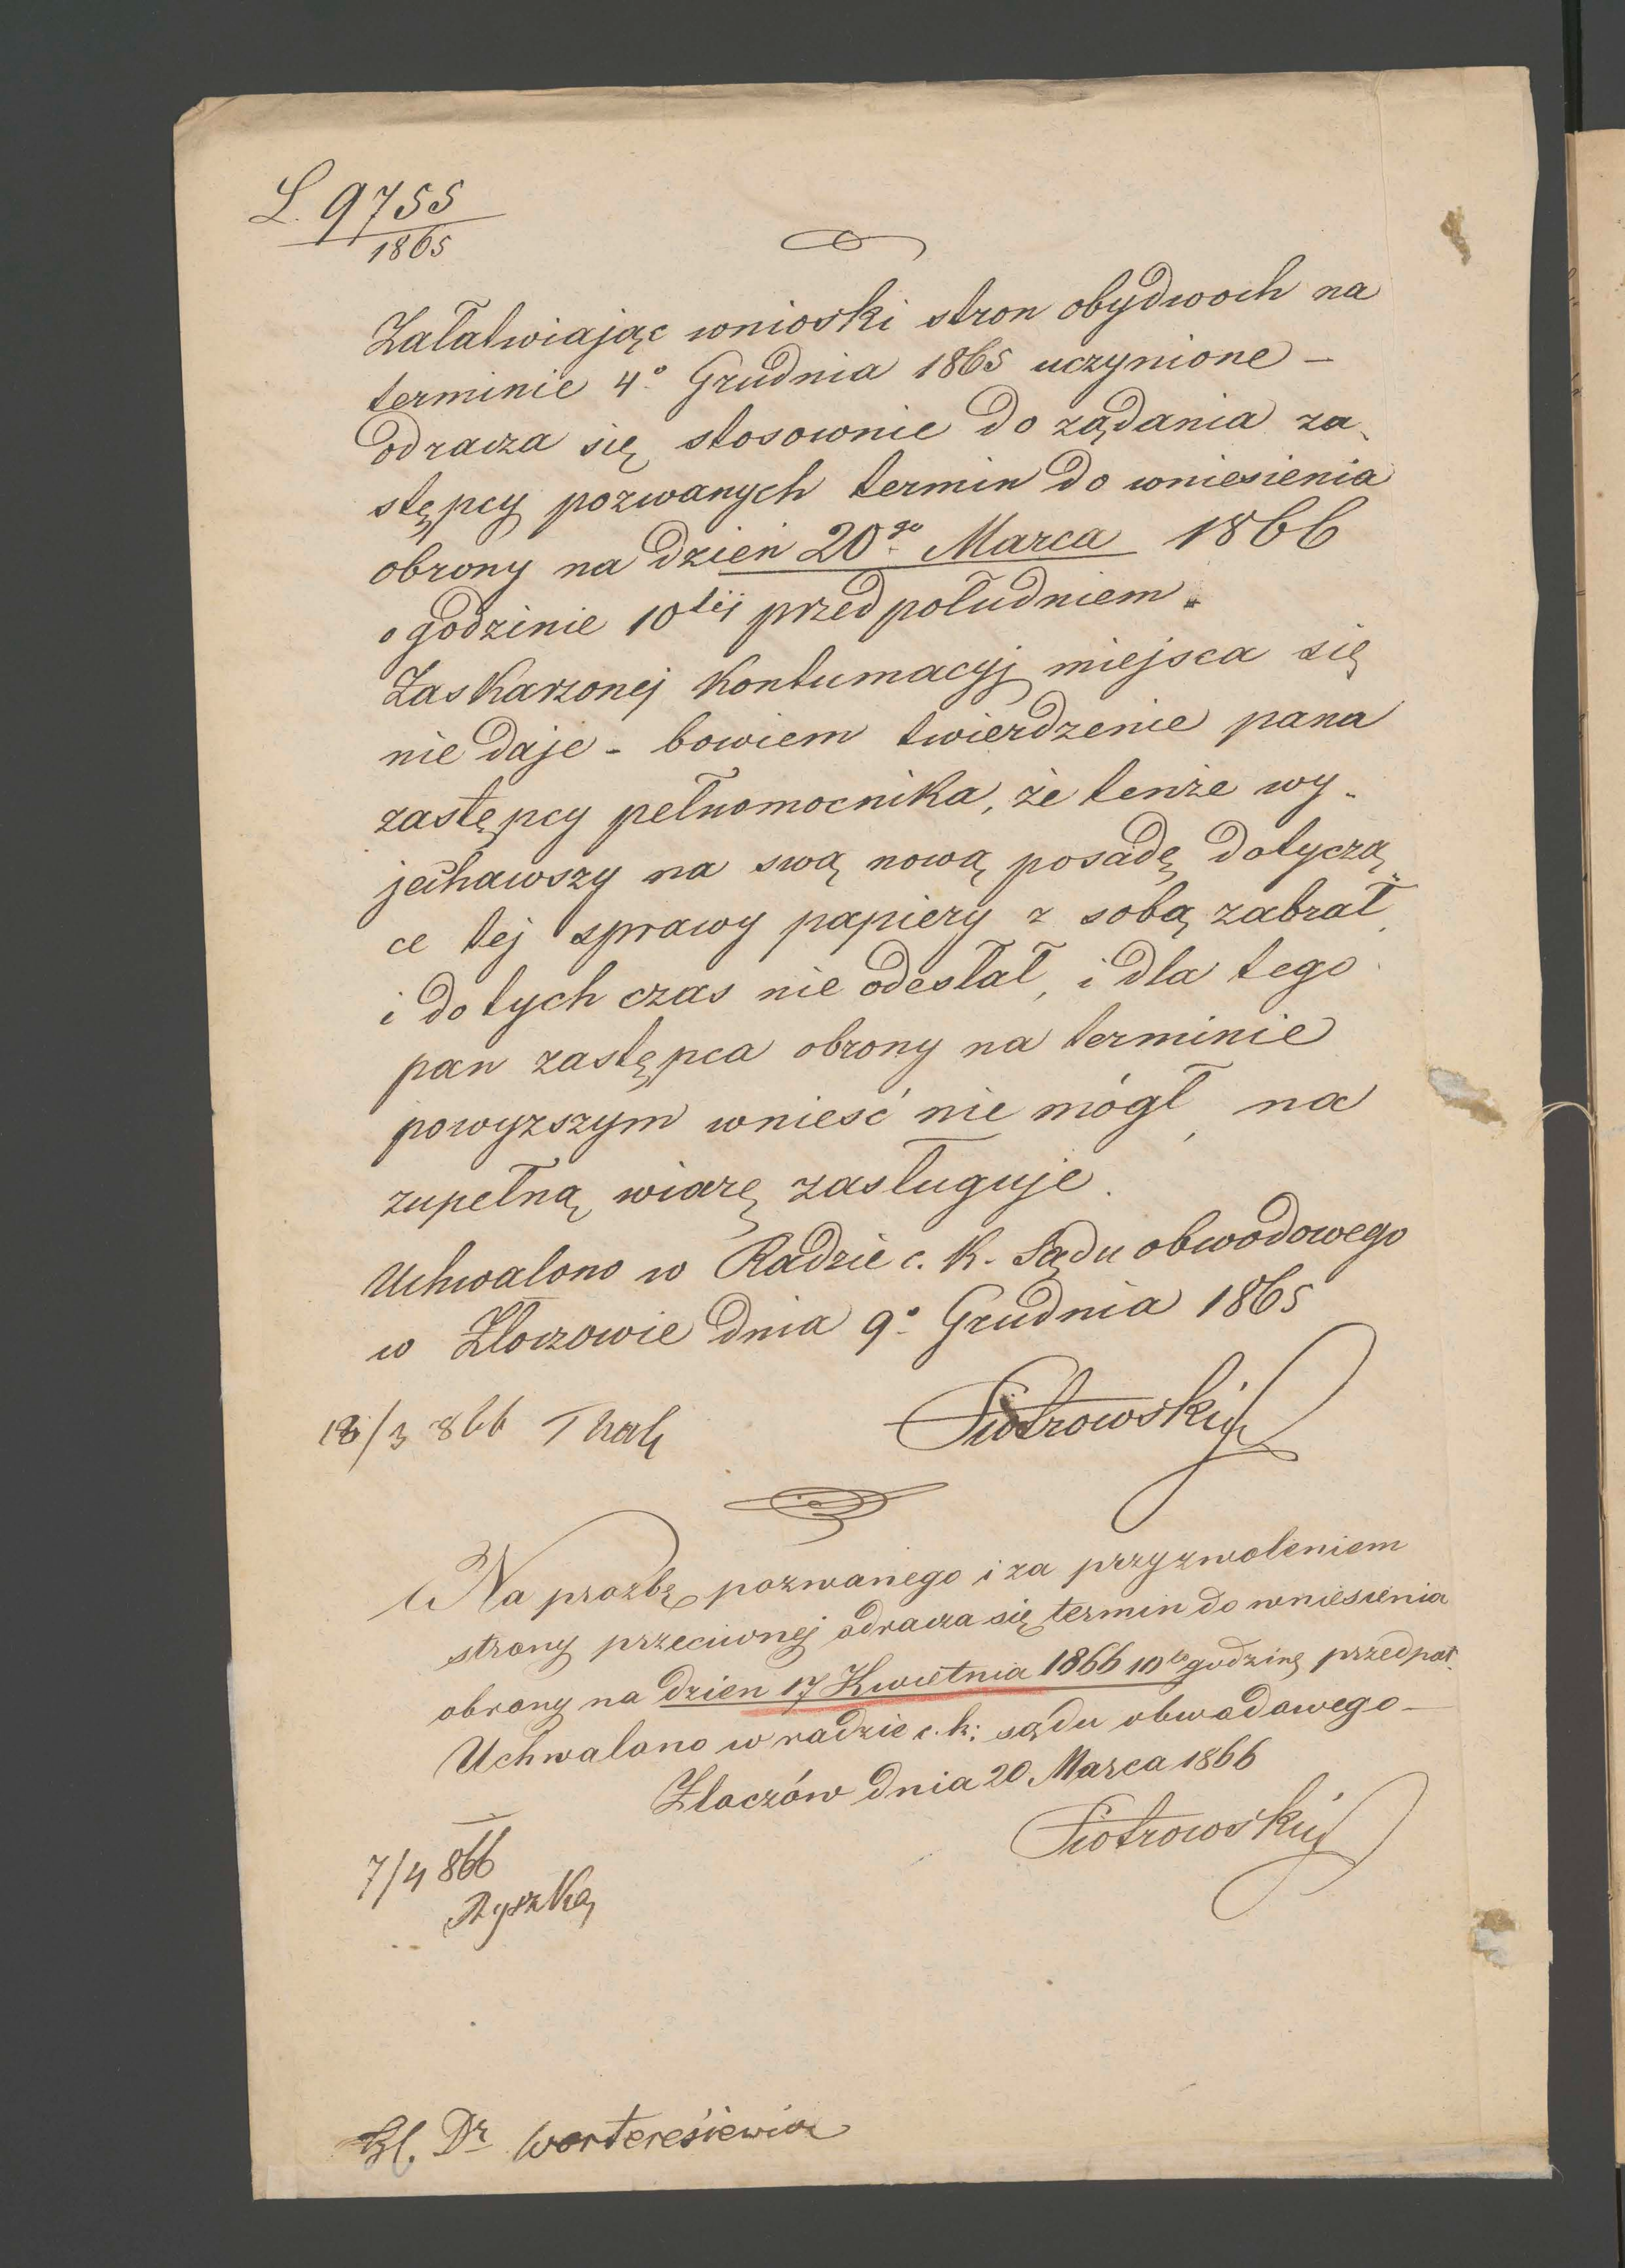 L. 9755
1865
Załatwiając wnioski stron obydwoch na
terminie 4º Grudnia 1865 uczynione –
odracza się stosownie do ządania za-
stępcy pozwanych termin do wniesienia
obrony na dzień 20go Marca 1866
o godzinie 10téj przed południem.
Zaskarzonej kontumacyj miejsca się
nie daje – bowiem twierdzenie pana
zastępcy pełnomocnika, że tenże wy-
jechawszy na swą nową posadę dotyczą-
ce tej sprawy papiery z sobą zabrał
i do tych czas nie odesłał, i dla tego
pan zastępca obrony na terminie
powyzszym wnieść nie mógł, na
zupełną wiarę zasługuje.
Uchwalono w Radzie c. k. Sądu obwodowego
w Złoczowie dnia 9º Grudnia 1865
Piotrowski
18/3 866
Na prozbę pozwanego i za przyzwoleniem
strony przeciwnej odracza się termin do wniesienia
obrony na dzien 17 Kwietnia 1866 10tą godzinę przedpoł.
Uchwalono w radzie c. k: sądu obwodowego –
Złoczów dnia 20 Marca 1866
Piotrowski
7/4 866
Dr Warteresiewicz